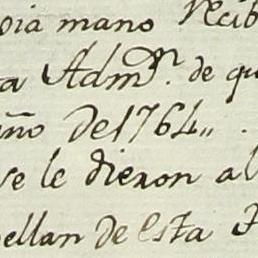 pia mano Recib
a Adm.ⁿ de qu
año De 1764,, .
se le dieron al
pellan de esta